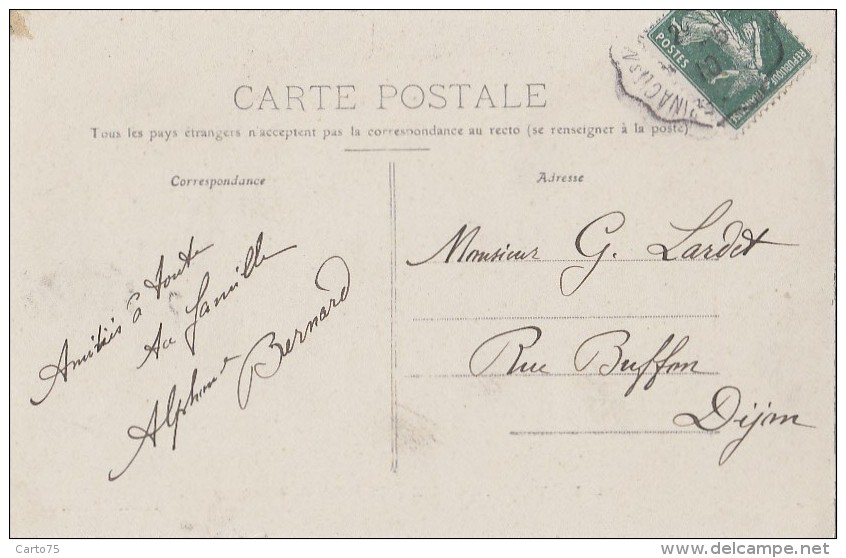 CARTE POSTALE
Tous les pays étrangers n'acceptent pas la correspondance au recto (se renseigner à la poste)
Correspondance
Amitiés à toute
la famille
Alphonse Bernard
Adresse
Monsieur G. Lardet
Rue Buffon
Dijon
POSTES
REPUBLIQUE FRANCAISE
Carto75
delcampe.net